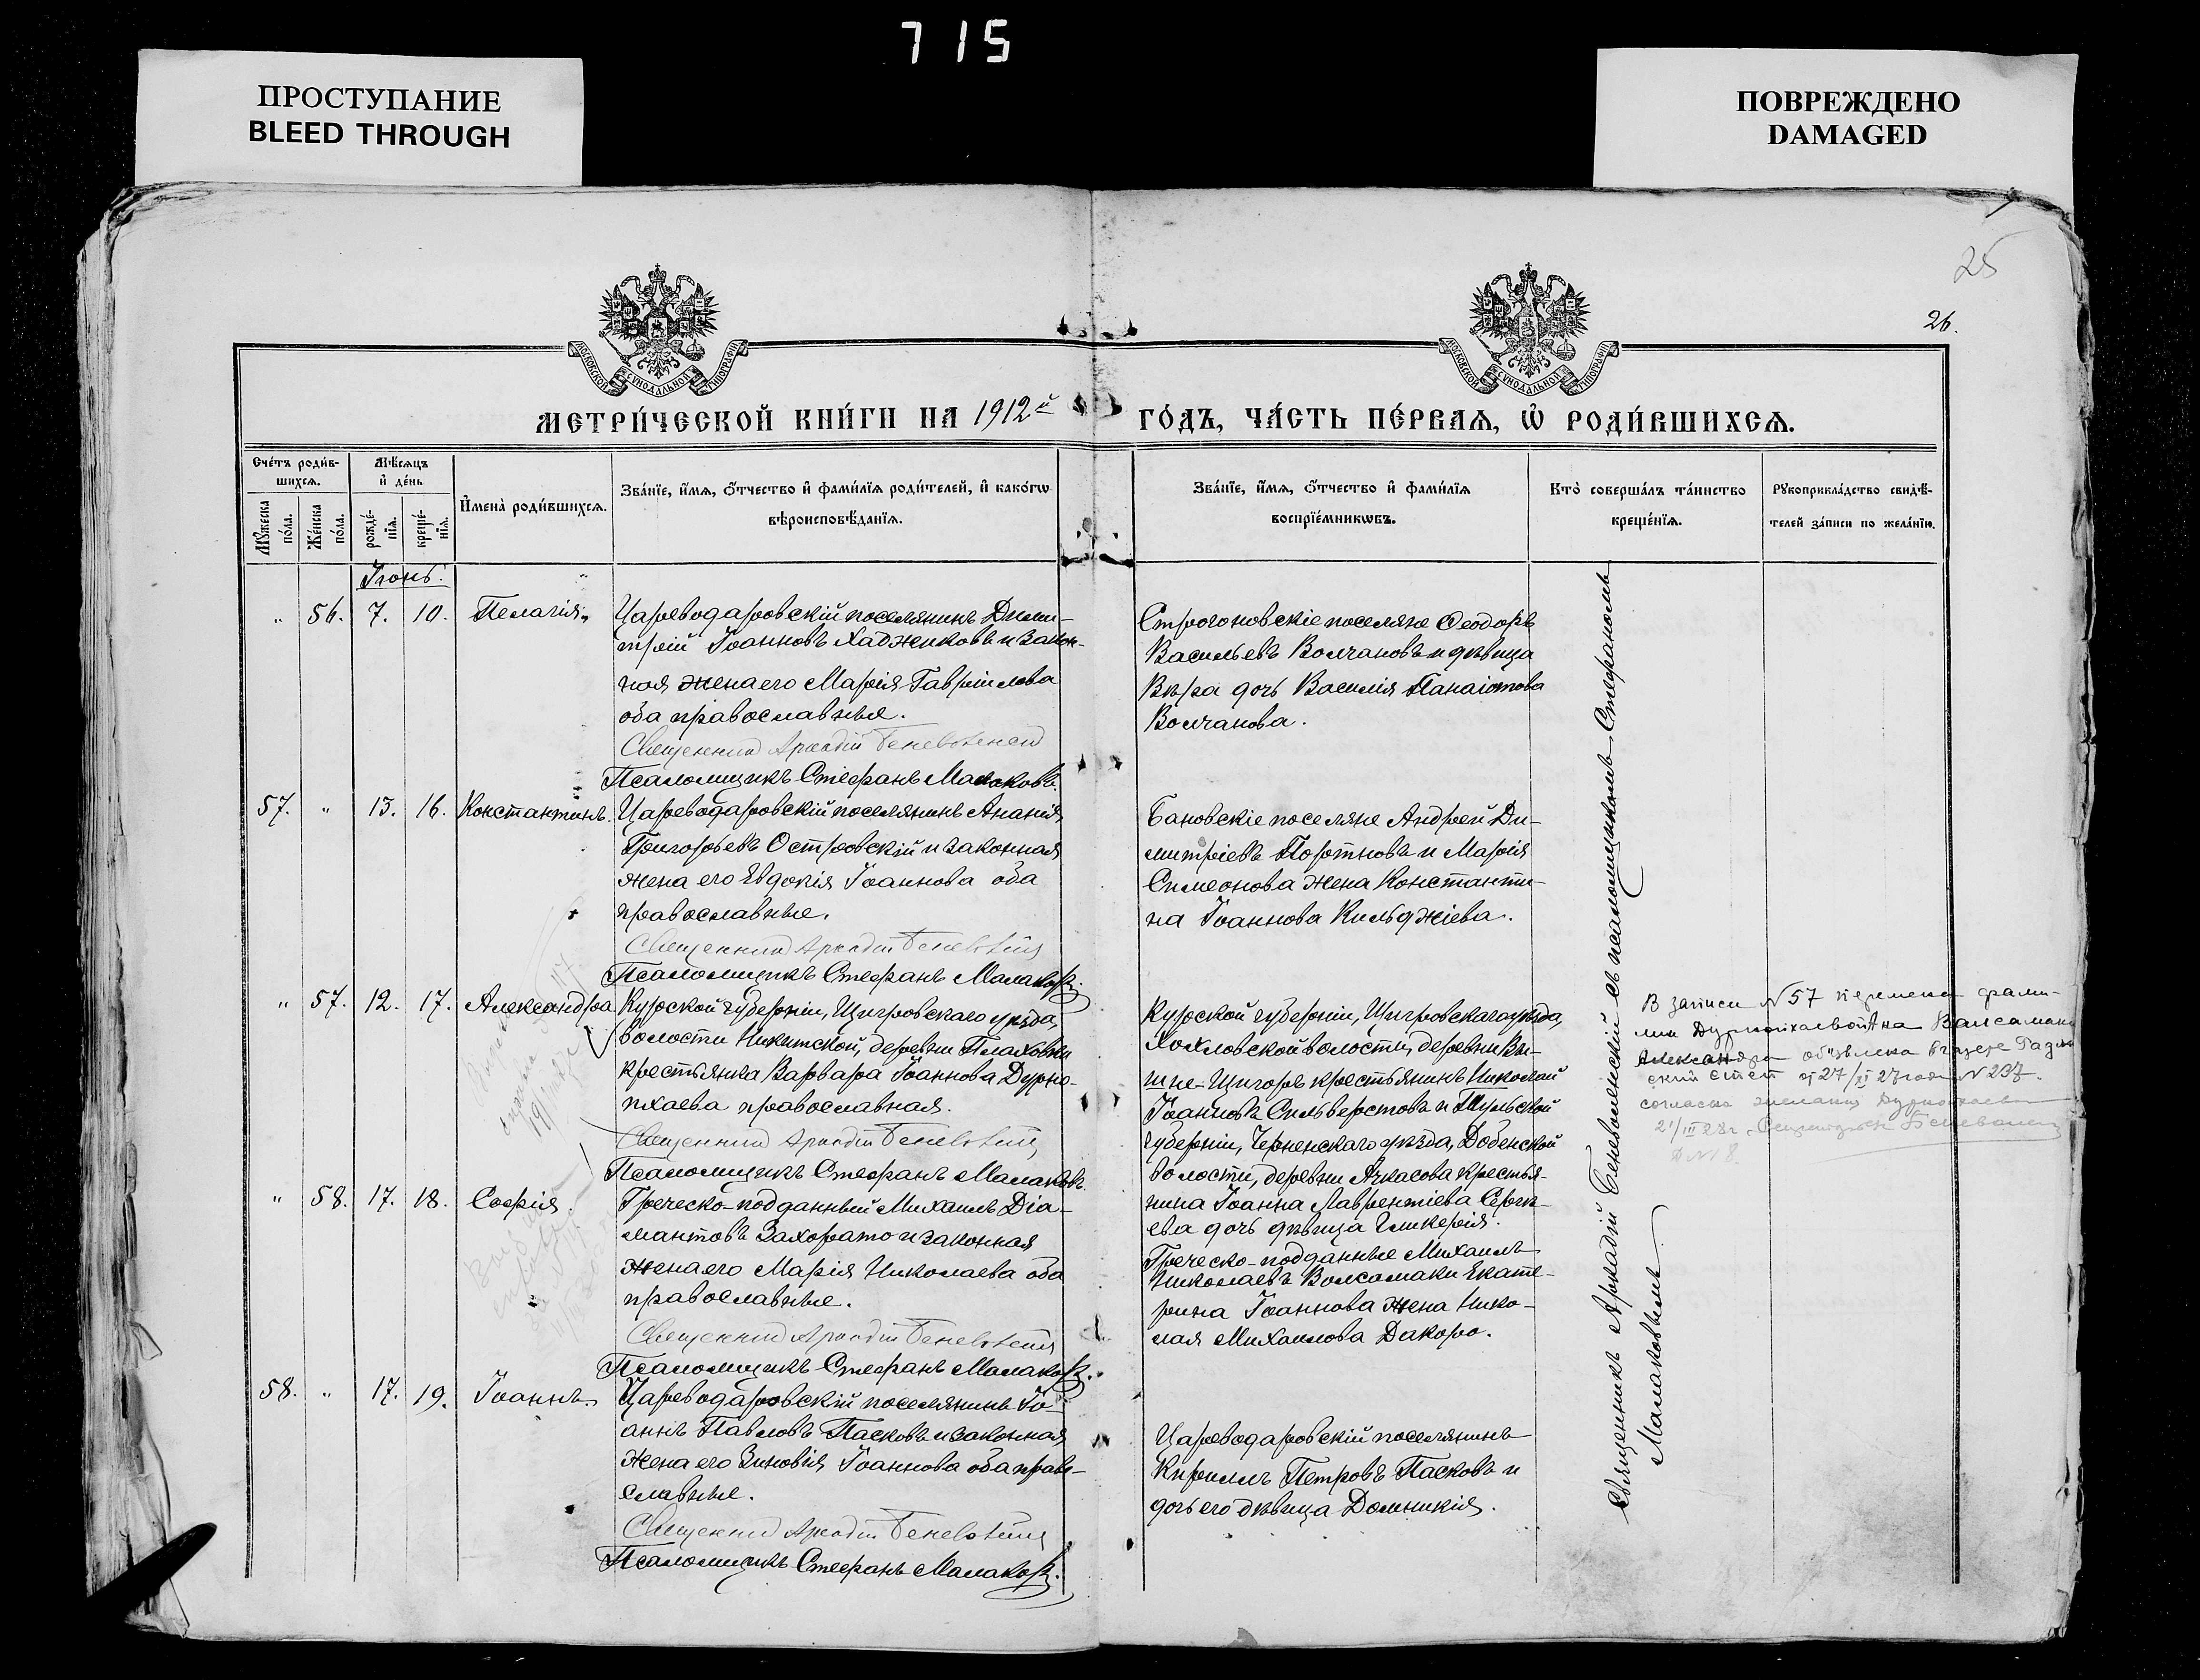 715
ПРОСТУПАНИЕ
BLEED THROUGH
ПОВРЕЖДЕНО
DAMAGED
25
26.
МОСКОВСКОЙ СѴНОДАЛЬНОЙ ТИПОГРАФІИ
МОСКОВСКОЙ СѴНОДАЛЬНОЙ ТИПОГРАФІИ
МЕТРИ́ЧЕСКОЙ КНИ́ГИ НА 1912й ГО́ДЪ, ЧА́СТЬ ПЕ́РВАЯ, Ѡ҆ РОДИ́ВШИХСЯ.
Сче́тъ роди́в-
шихся.
Мѣ́сяцъ
и҆ де́нь
Мꙋ́жеска
по́ла.
Же́нска
по́ла.
рожде́-
нїя.
креще́-
нїя.
И҆мена̀ роди́вшихся.
Зва́нїе, и҆́мя, о҆́тчество и҆ фами́лїя роди́телей, и҆ како́гѡ
вѣроисповѣ́данїя.
Зва́нїе, и҆́мя, о҆́тчество и҆ фами́лїя
воспрїе́мникѡвъ.
Кто̀ соверша́лъ та́инство
креще́нїя.
Рꙋкоприкла́дство свидѣ́-
телей за́писи по жела́нїю.
Іюнь.
„ 56. 7. 10. Пелагія
Цареводаровскій поселянинъ Дими-
трій Іоанновъ Хаджиковъ и закон-
ная жена его Марія Гавріилова
оба православные.
Священник Аркадій Беневоленский
Псаломщикъ Стефанъ Малаковъ.
Строгоновскіе поселяне Ѳеодоръ
Васильевъ Волчановъ и дѣвица
Вѣра дочь Василія Панаіотова
Волчанова.
57. „ 13. 16. Константинъ.
Цареводаровскій поселянинъ Ананія
Григорьевъ Островскій и законная
жена его Евдокія Іоаннова оба
православные.
Священник Аркадій Беневоленский
Псаломщикъ Стефанъ Малаковъ.
Бановскіе поселяне Андрей Ди-
митріевъ Портновъ и Марія
Симеонова жена Константи-
на Іоаннова Кильджіева.
„ 57. 12. 17. Александра
Курской губерніи, Щигровскаго уѣзда,
волости Никитской, деревни Плаховки
крестьянка Варвара Іоаннова Дурне-
пхаева православная.
Священник Аркадій Беневоленский
Псаломщикъ Стефанъ Малаковъ.
Курской губерніи, Щигровскаго уѣзда,
Хохловской волости, деревни Вы-
шне-Щигоръ крестьянинъ Николай
Іоанновъ Сильверстовъ и Тульской
губерніи, Черненскаго уѣзда, Добенской
волости, деревни Ачкасова крестья-
нина Іоанна Лаврентіева Сергѣ-
ева дочь дѣвица Гликерія.
В записи № 57 перемена фами-
лии на Валсамаки
Александра
27/XI 27 года № 237.
согласно желания
21/III 28 г.
„ 58. 17. 18. Софія.
Греческо-подданный Михаилъ Діа-
мантовъ Захорато и законная
жена его Марія Николаева оба
православные.
Священник Аркадій Беневоленский
Псаломщикъ Стефанъ Малаковъ.
Греческо-подданные Михаилъ
Николаевъ Волсамаки Екате-
рина Іоаннова жена Нико-
лая Михаилова Дакоро.
58. „ 17. 19. Іоаннъ.
Цареводаровскій поселянинъ Іо-
аннъ Павловъ Пасковъ и законная
жена его Зиновія Іоаннова оба право-
славные.
Священник Аркадій Беневоленский
Псаломщикъ Стефанъ Малаковъ.
Цареводаровскій поселянинъ
Кириллъ Петровъ Пасковъ и
дочь его дѣвица Домникія.
Священникъ Аркадій Беневоленскій съ псаломщикомъ Стефаномъ
Малаковымъ